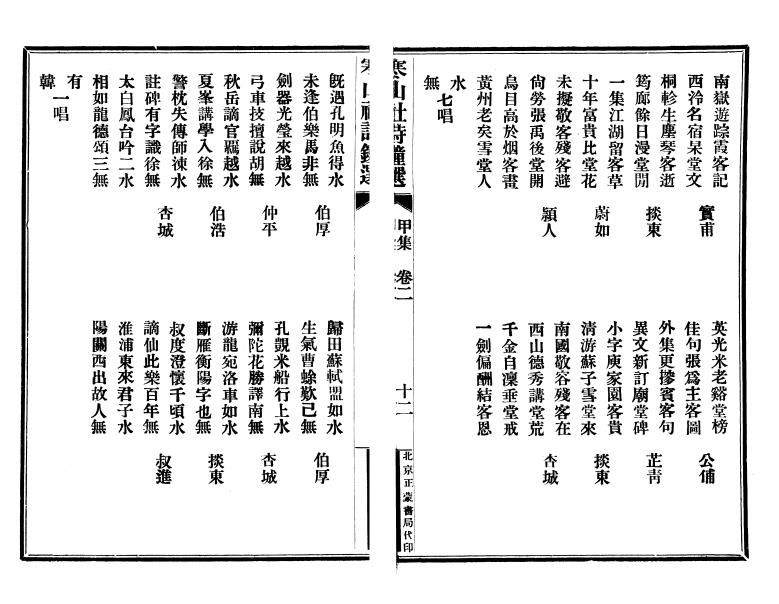 南嶽遊踪霞客記
西泠名宿呆堂文
實甫
英光米老谿堂榜
佳句張爲主客圖
公俌
桐軫生塵琴客逝
筠廊餘日漫堂閒
掞東
外集更摻賓客句
異文新訂廟堂碑
芷靑
一集江湖留客草
十年富貴比堂花
蔚如
小字庾家園客貴
淸游蘇子雪堂來
掞東
未擬敬客殘客避
尙勞張禹後堂開
穎人
南國敬容殘客在
西山德秀講堂荒
杏城
烏目高於烟客畫
黃州老矣雪堂人
千金自凜垂堂戒
一劍偏酬結客恩
水
無
七唱
寒山社詩鐘選
甲集
卷二
十二
北京正蒙書局代印
旣遇孔明魚得水
未逢伯樂馬非無
伯厚
歸田蘇軾盟如水
生氣曹蜍歎已無
伯厚
劍器光瑩來越水
弓車技擅說胡無
仲平
孔覬米船行上水
彌陀花勝譯南無
杏城
秋岳謫官越水
夏峯講學入徐無
伯浩
游龍宛洛車如水
斷雁衡陽字也無
掞東
警枕失傳師涑水
註碑有字識徐無
杏城
叔度澄懷千頃水
謫仙此樂百年無
叔進
太白鳳台吟二水
相如龍德頌三無
淮浦東來君子水
陽關西出故人無
有
韓
一唱